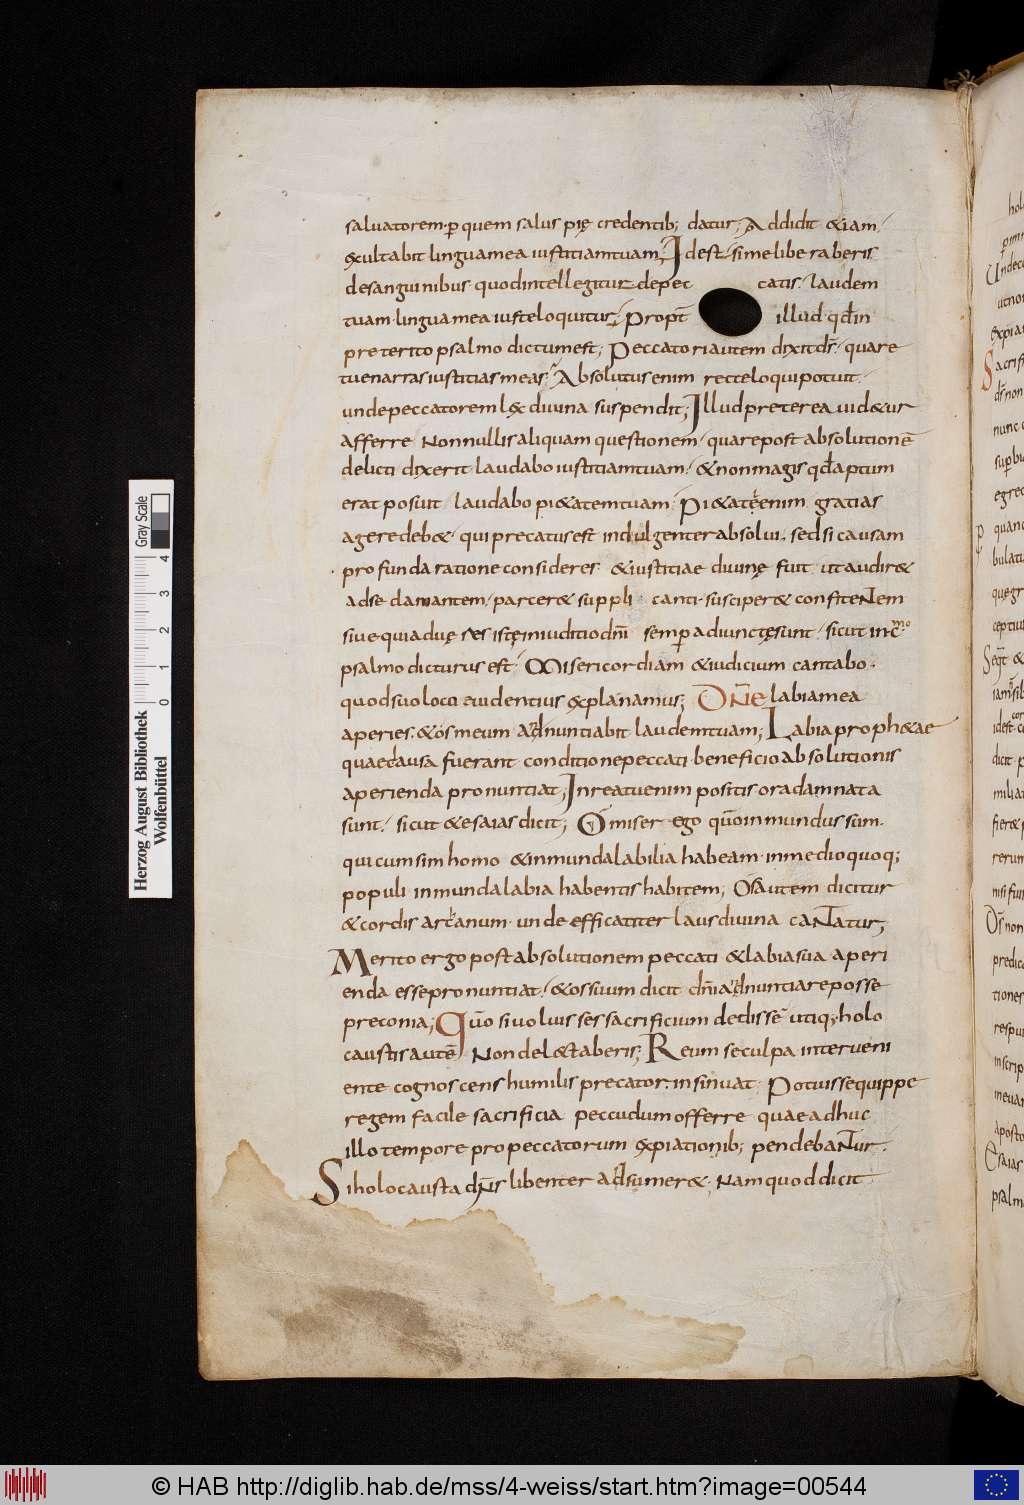 saluatorem· ꝑ quem salus pię credentib; datur; Addidit & iam
exultabit lingua mea iustitiam tuam; Id est· si me liberaberis
de sanguinibus· quod intellegitur de pec catis· laudem
tuam lingua mea iuste loquitur; Propt̄ illud qđ in
preterito psalmo dictum est; Peccatori autem dixit dš· quare
tu enarras iustitias meas; Absolutus enim recte loqui potuit·
unde peccatorem lex diuina suspendit; Illud preterea uid&ur
afferre nonnullis aliquam questionem· quare post absolutionē
delicti dixerit laudabo iustitiam tuam· & non magis qđ aptum
erat posuit· laudabo pi&atem tuam; Pi&ate enim gratias
agere deb&· qui precatus est indulgenter absolui· sed si causam
profunda ratione consideres· & iustitiae diuinę fuit ut audir&
ad se clamantem· parcer& suppli canti· susciper& confiteNtem
siue quia duę res istę in iuditio dn̄i semper adiunctę sunt· sicut in c̄mo
psalmo dicturus est; Misericordiam & iudicium cantabo·
quod suo loco euidentius explanamus; DN̄E labia mea
aperies· & os meum adnuntiabit laudem tuam; Labia proph&ae
quae clausa fuerant conditione peccati· beneficio absolutionis
aperienda pronuntiat; In reatu enim positis ora damnata
sunt· sicut & esaias dicit; O miser ego quō inmundus sum·
qui cum sim homo & inmunda labilia habeam· in medio quoq;
populi inmunda labia habentis habitem; Os autem dicitur
& cordis archanum· unde efficatiter laus diuina caNtatur;
Merito ergo post absolutionem peccati & labia sua aperi
enda esse pronuntiat· & os suum dicit dn̄i adnuntiare posse
preconia; Quō si uoluisses sacrificium dedissē utiq; holo
caustis autē Non del&taberis; Reum se culpa interueni
ente cognoscens humilis precator insinuat· Potuisse quippe
regem facile sacrificia peccudum offerre quae adhuc
illo tempore pro peccatorum expiationib; pendebaNtur·
Si holocausta dN̄s libenter adsumer&· Nam quod dicit
Herzog August Bibliothek
Wolfenbüttel
0 1 2 3 4
Gray Scale
© HAB http://diglib.hab.de/mss/4-weiss/start.htm?image=00544